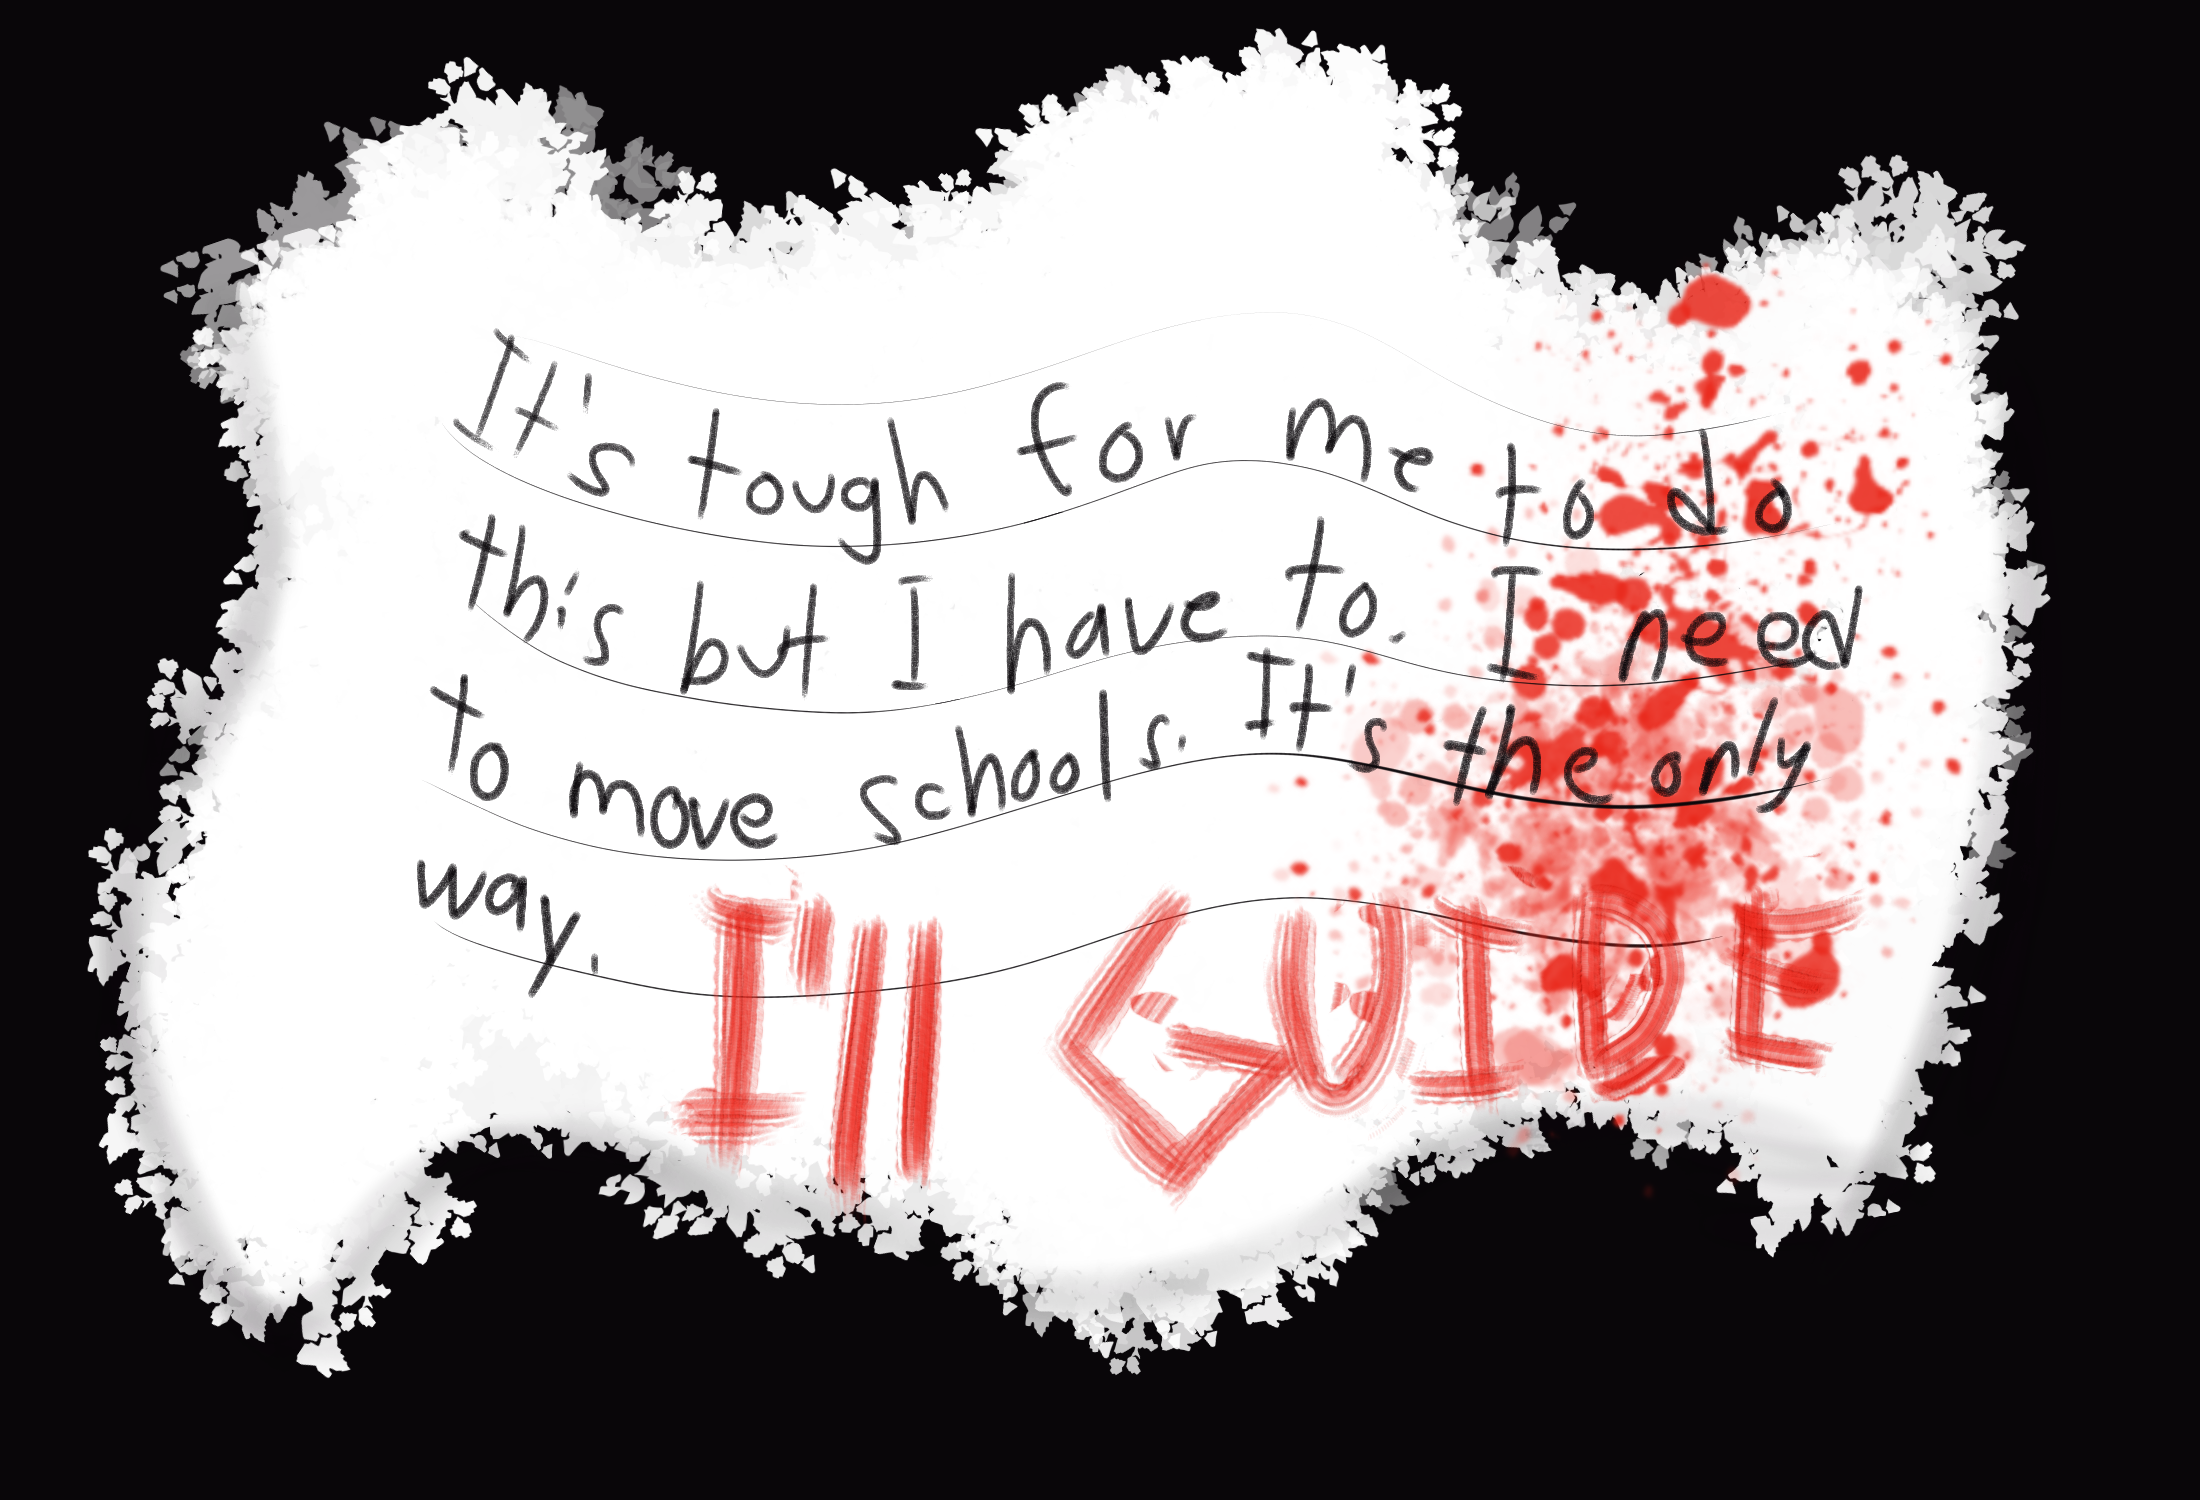 It's tough for me to do
this but I have to. I need
to move schools. It's the only
way. I'll GUIDE